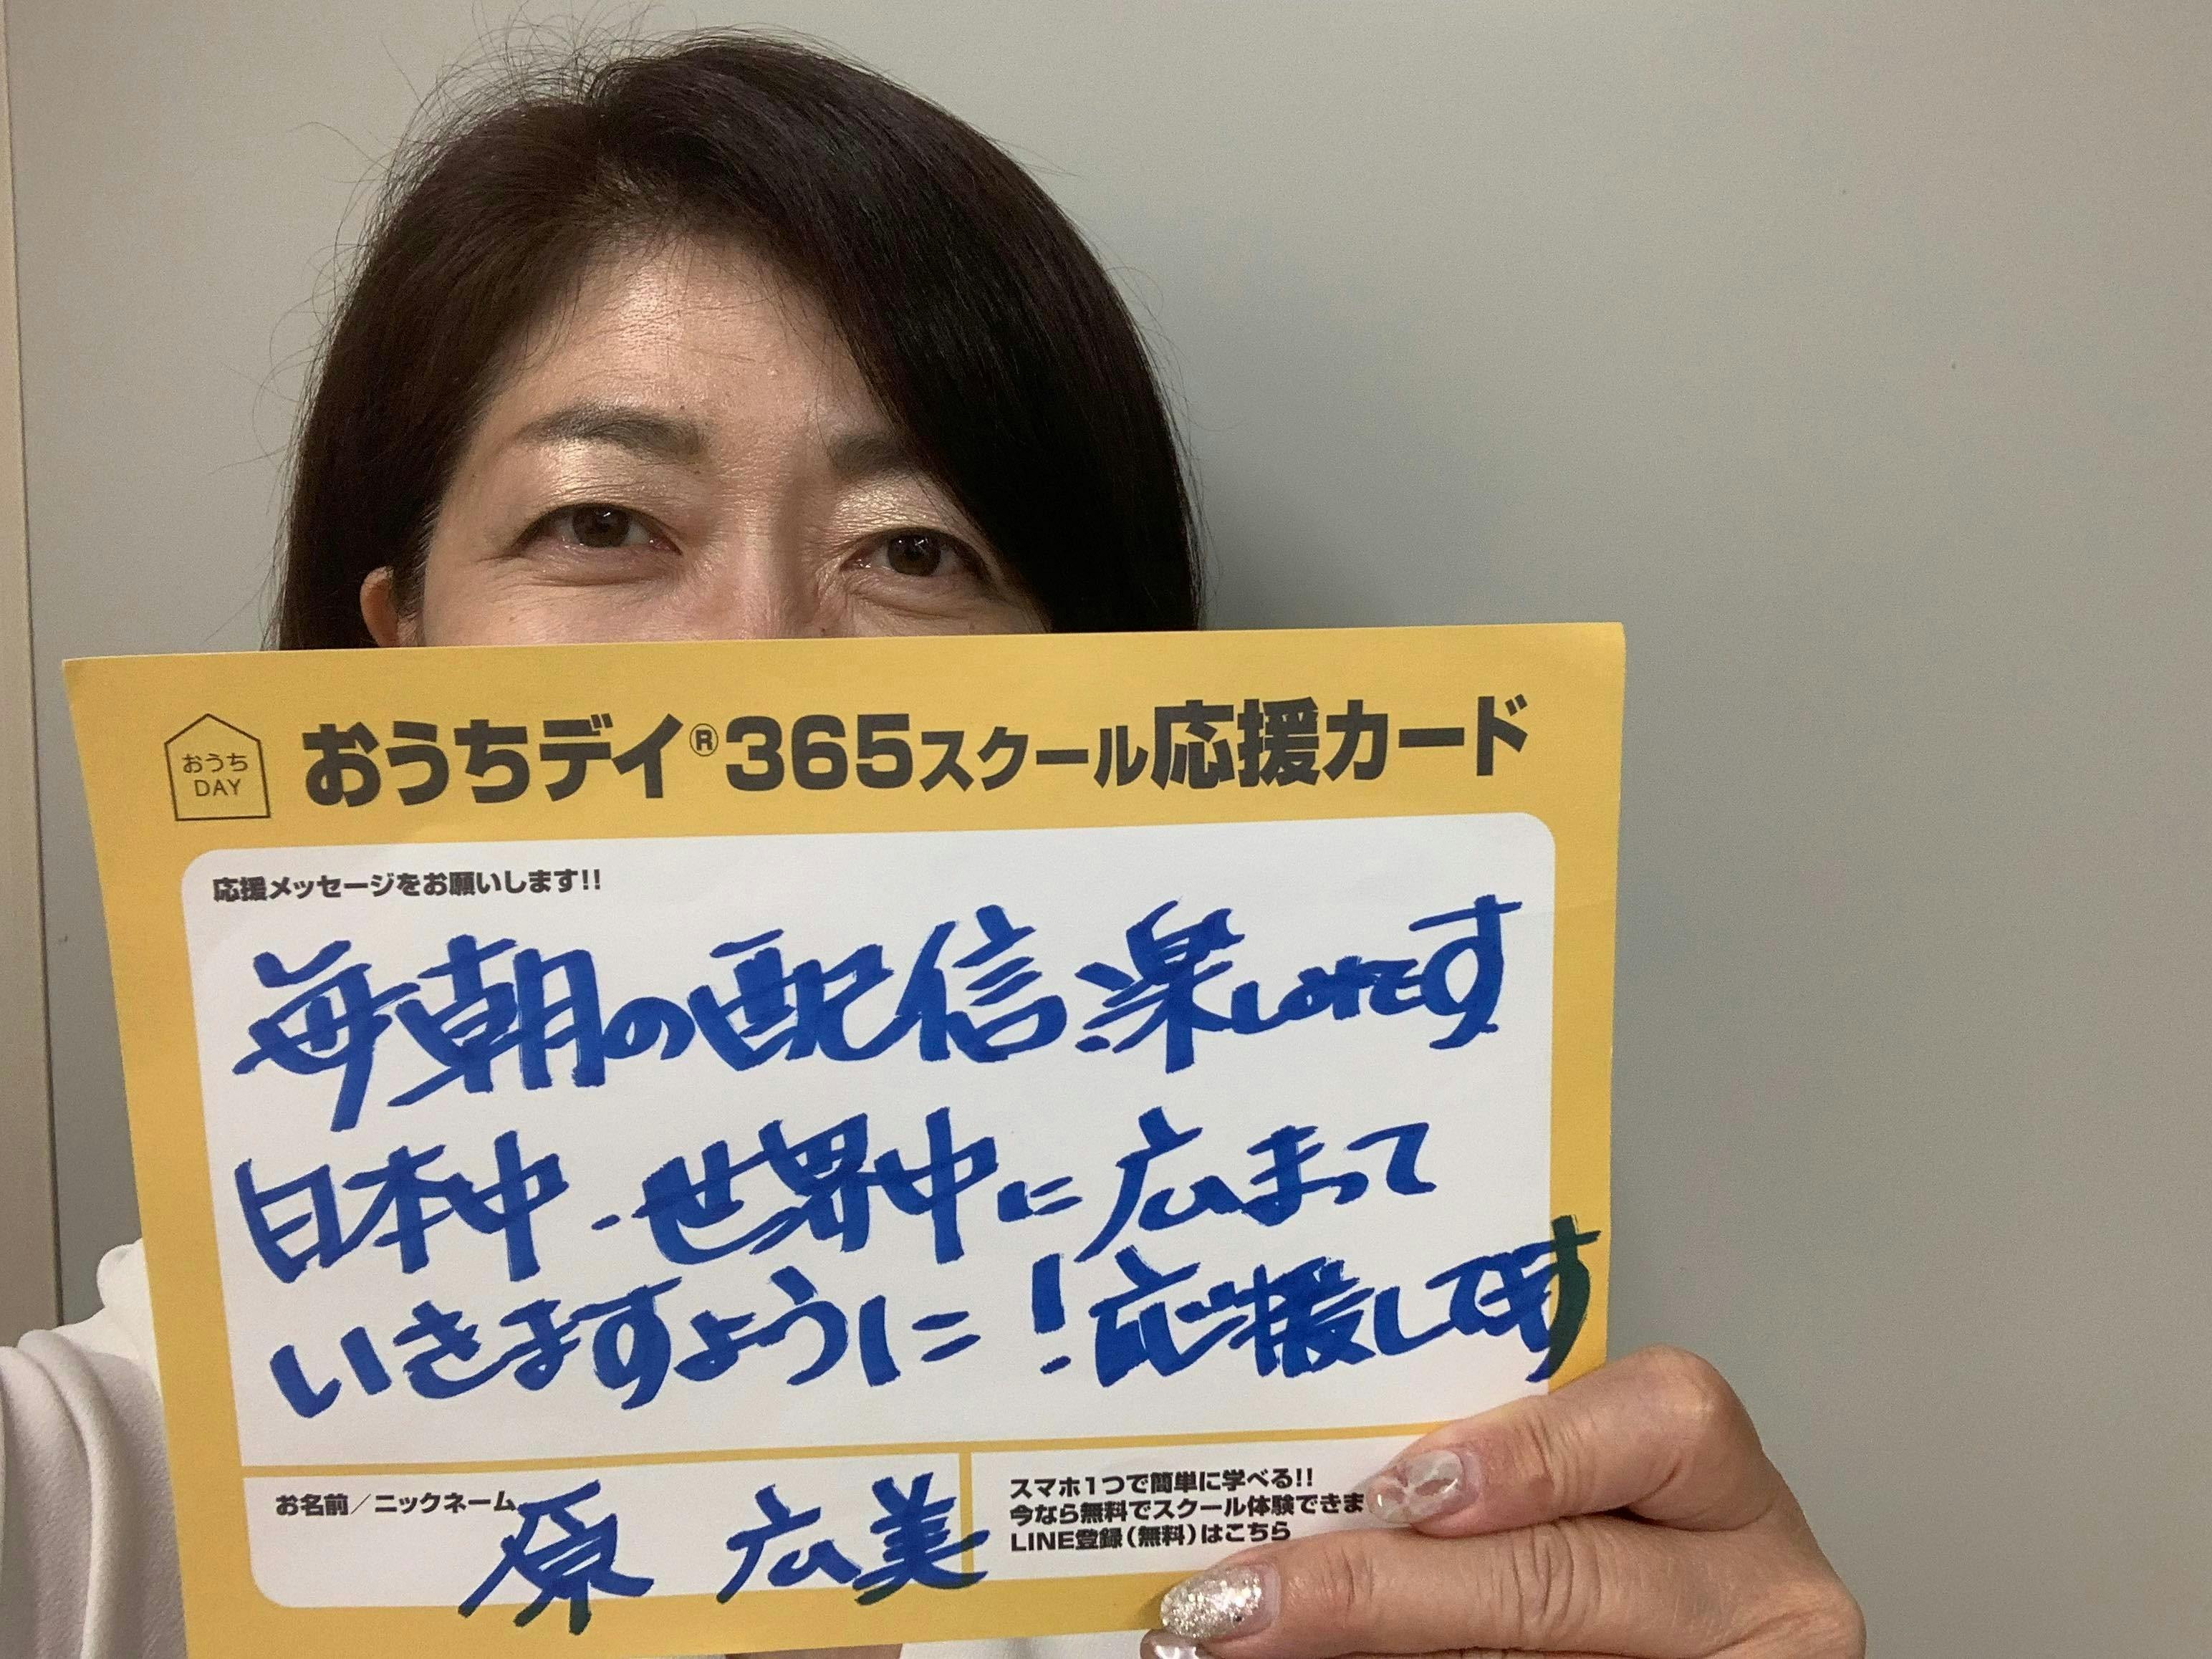 おうち
DAY
おうちデイ®365スクール応援カード
応援メッセージをお願いします!!
毎朝の配信楽しみです
日本中・世界中に広まって
いきますように!応援してます
お名前/ニックネーム
原 広美
スマホ1つで簡単に学べる!!
今なら無料でスクール体験できま
LINE登録(無料)はこちら